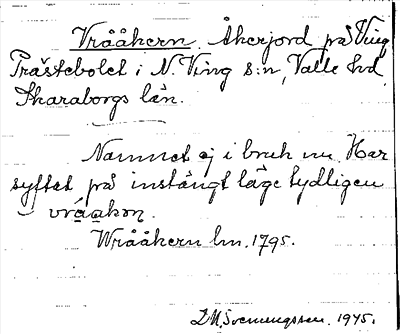 Vrååkern. Åkerjord på Ving
Prästebolet i N. Ving s:n, Valle hd
Skaraborgs län.
Namnet ej i bruk nu. Har
syftat på instängt läge tydligen
vråakəṇ.
Wrååkern lm. 1795.
1945.